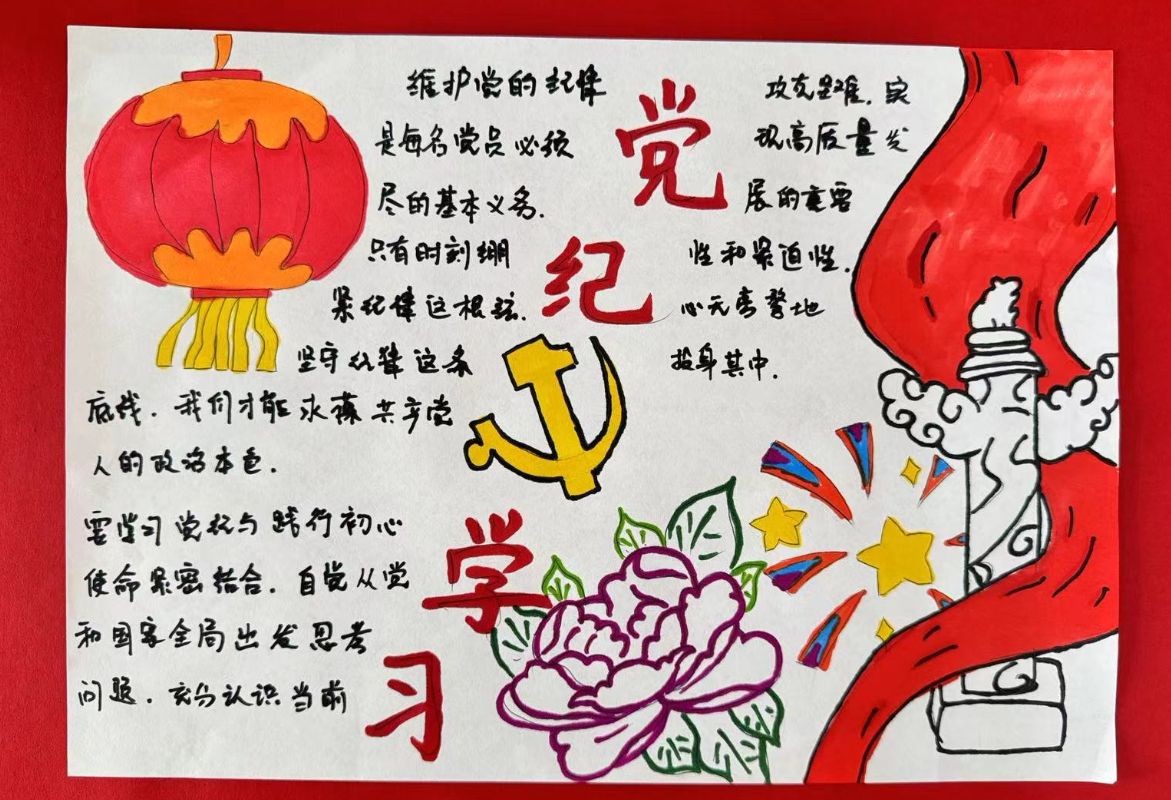 党纪学习
维护党的纪律
是每名党员必须
尽的基本义务.
只有时刻绷
紧纪律这根弦.
坚守纪律这条
底线.我们才能永葆共产党
人的政治本色.
要学习党纪与践行初心
使命紧密结合.自觉从党
和国家全局出发思考
问题.充分认识当前
攻克难.实
现高质量发
展的重要
性和紧迫性.
心无旁骛地
投身其中.